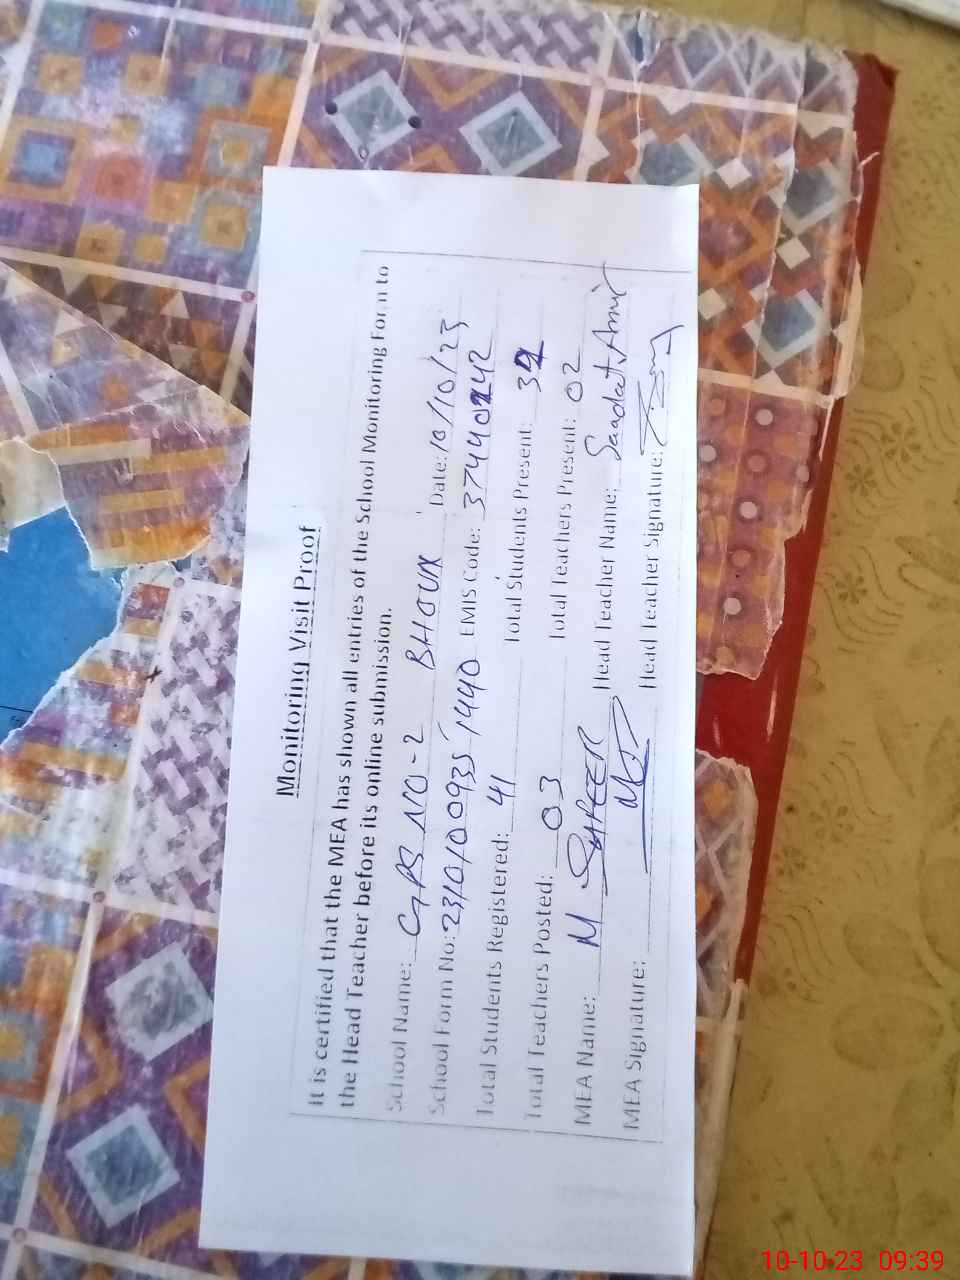 Monitoring Visit Proof
It is certified that the MEA has shown all entries of the School Monitoring Form to
the Head Teacher before its online submission.
School Name: GPS NO-2 BHOUN Date: 10/10/23
School Form No: 2310100935,1440 EMIS Code:
Total Students Registered: 41 Total Students Present:
Total Teachers Posted: 03 Total Teachers Present: 02
MEA Name: M SAFEER Head Teacher Name: Saadat Amir
MEA Signature: Head Teacher Signature:
10-10-23 09:39